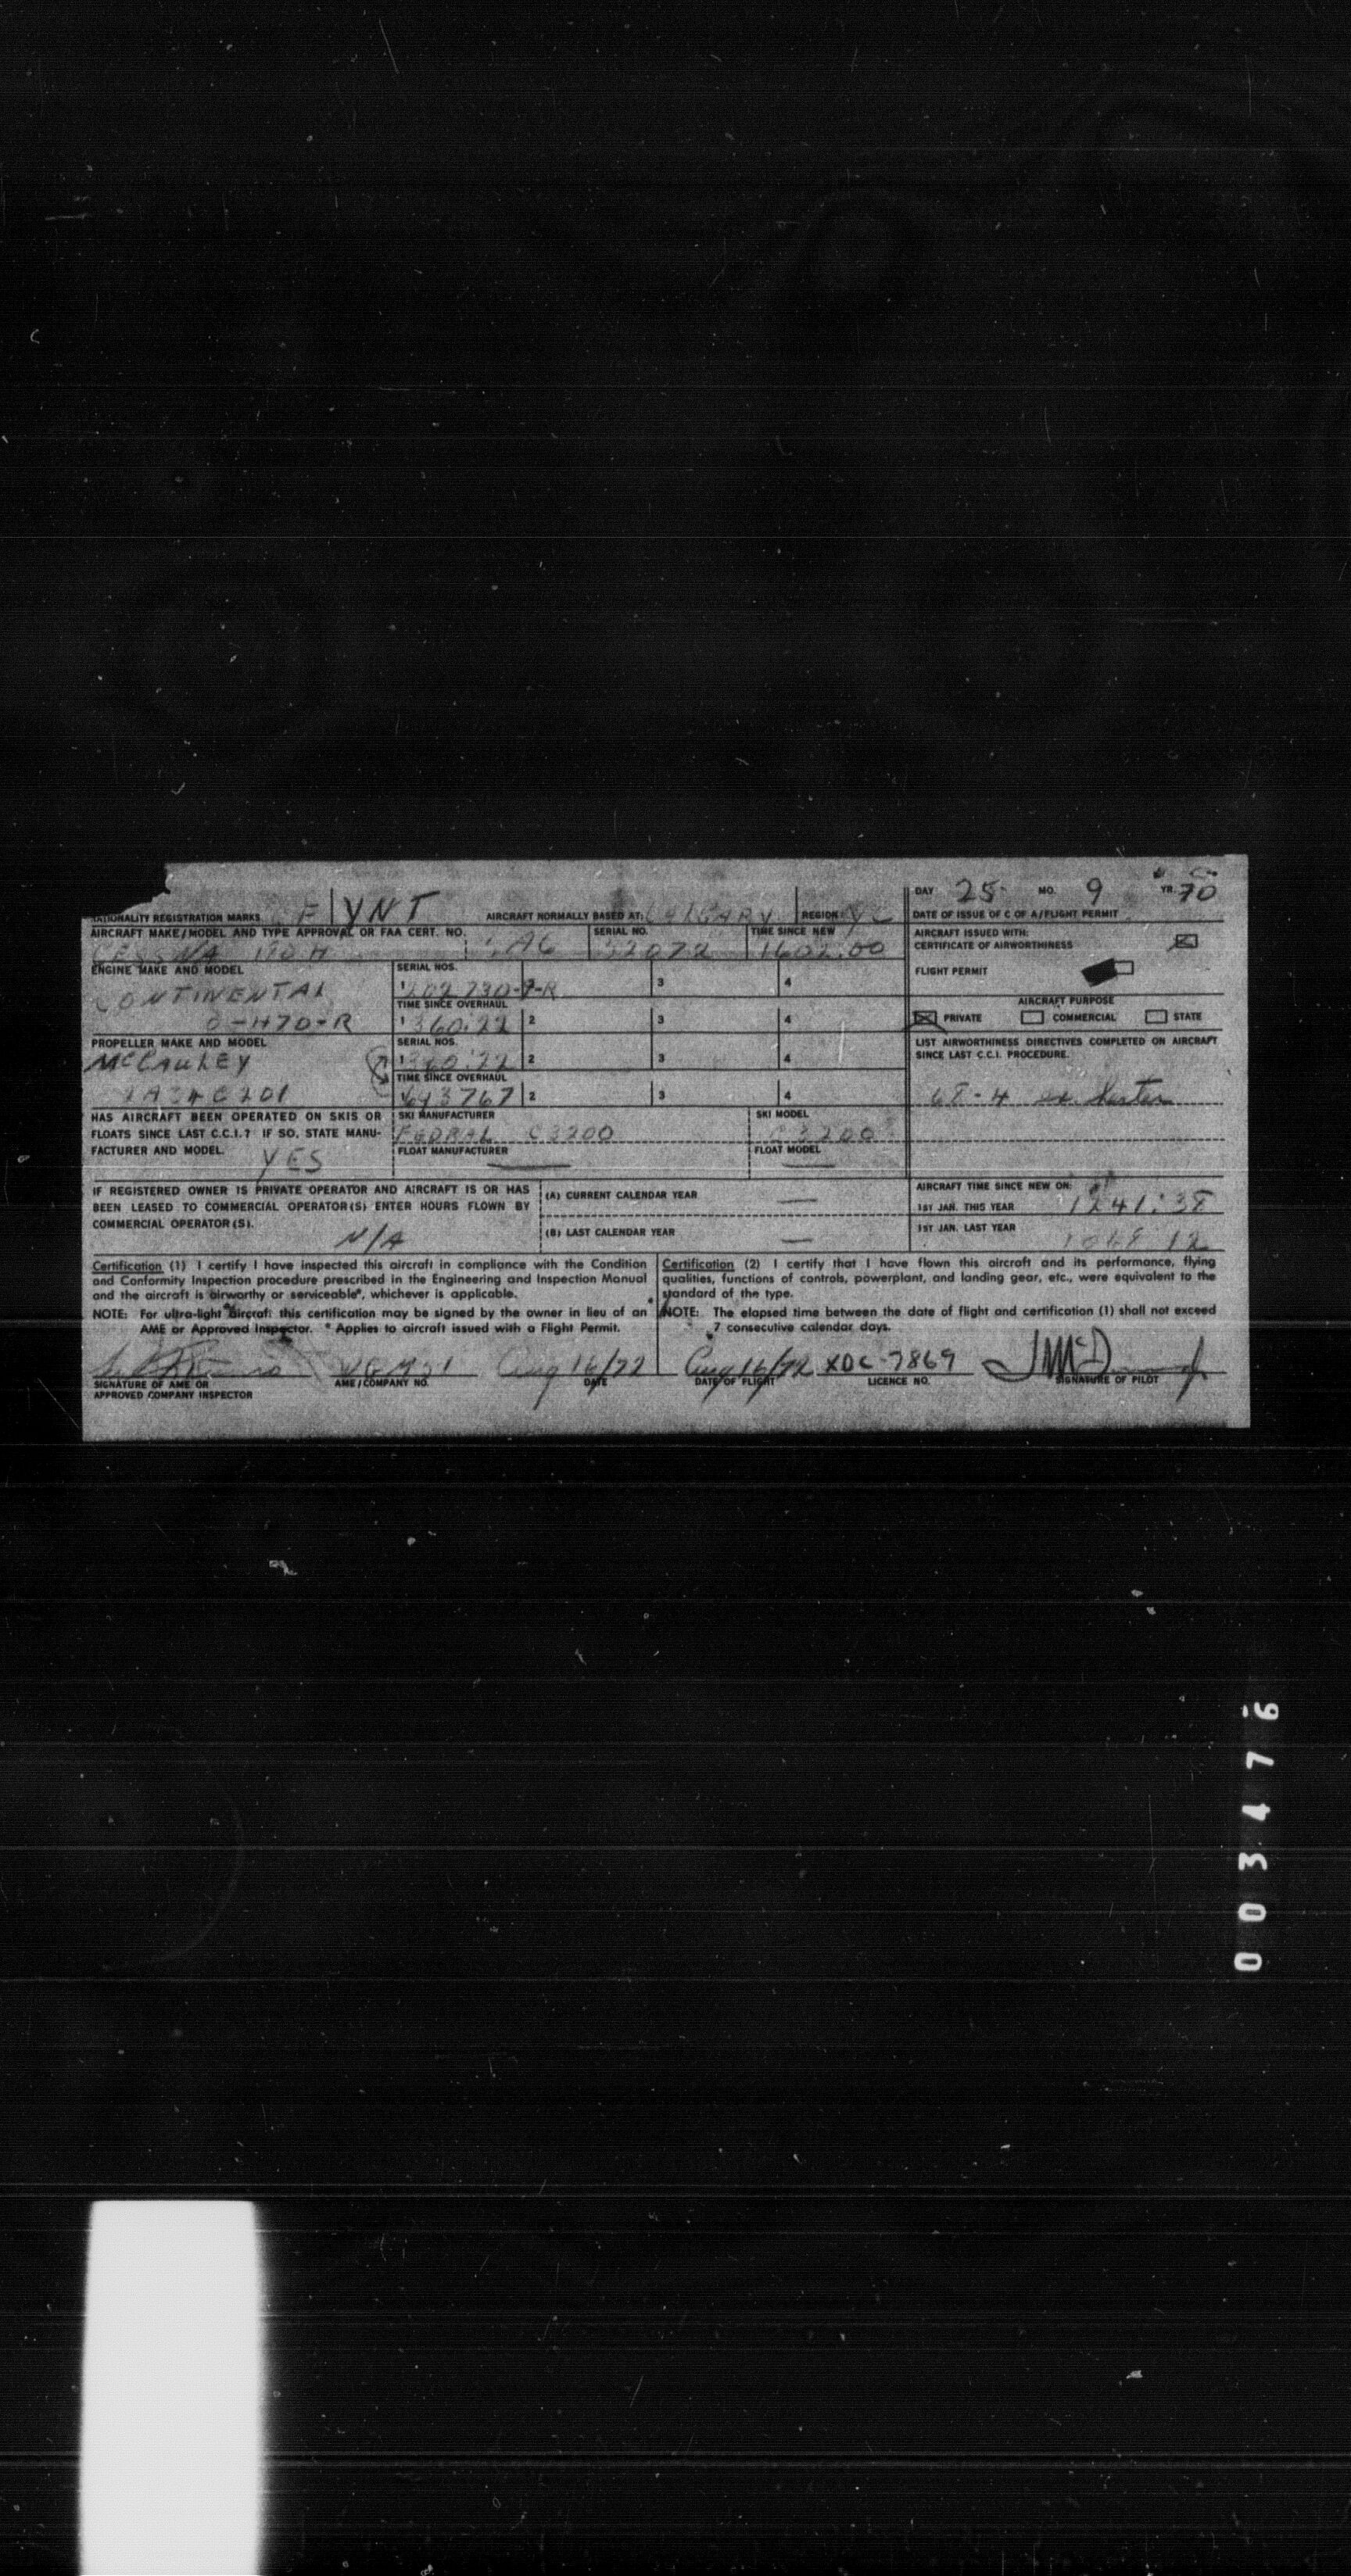 DAY 25 MO. 9 YR. 70
NATIONALITY REGISTRATION MARKS F YNT AIRCRAFT NORMALLY BASED AT: CALGARY REGION: DATE OF ISSUE OF C OF A/FLIGHT PERMIT
AIRCRAFT MAKE/MODEL AND TYPE APPROVAL OR FAA CERT. NO. SERIAL NO. TIME SINCE NEW AIRCRAFT ISSUED WITH:
CESSNA 180 H 5A6 52072 1602:00 CERTIFICATE OF AIRWORTHINESS
ENGINE MAKE AND MODEL SERIAL NOS. FLIGHT PERMIT
CONTINENTAL 1 2 3 4
O-470-R TIME SINCE OVERHAUL AIRCRAFT PURPOSE
1 360:22 2 3 4 PRIVATE COMMERCIAL STATE
PROPELLER MAKE AND MODEL SERIAL NOS. LIST AIRWORTHINESS DIRECTIVES COMPLETED ON AIRCRAFT
McCAULEY 1 360:22 2 3 4 SINCE LAST C.C.I. PROCEDURE.
2A34C201 TIME SINCE OVERHAUL
643767 2 3 4 68-4
HAS AIRCRAFT BEEN OPERATED ON SKIS OR SKI MANUFACTURER SKI MODEL
FLOATS SINCE LAST C.C.I.? IF SO, STATE MANU- FEDRAL C3200 C3200
FACTURER AND MODEL. YES FLOAT MANUFACTURER — FLOAT MODEL —
IF REGISTERED OWNER IS PRIVATE OPERATOR AND AIRCRAFT IS OR HAS (A) CURRENT CALENDAR YEAR — AIRCRAFT TIME SINCE NEW ON:
BEEN LEASED TO COMMERCIAL OPERATOR(S) ENTER HOURS FLOWN BY 1ST JAN. THIS YEAR 1241:38
COMMERCIAL OPERATOR(S). N/A (B) LAST CALENDAR YEAR — 1ST JAN. LAST YEAR
Certification (1) I certify I have inspected this aircraft in compliance with the Condition
and Conformity Inspection procedure prescribed in the Engineering and Inspection Manual
and the aircraft is airworthy or serviceable*, whichever is applicable.
NOTE: For ultra-light aircraft this certification may be signed by the owner in lieu of an
AME or Approved Inspector. * Applies to aircraft issued with a Flight Permit.
Certification (2) I certify that I have flown this aircraft and its performance, flying
qualities, functions of controls, powerplant, and landing gear, etc., were equivalent to the
standard of the type.
NOTE: The elapsed time between the date of flight and certification (1) shall not exceed
7 consecutive calendar days.
Aug 16/72 Aug 16/72 XDC-7869
SIGNATURE OF AME OR AME/COMPANY NO. DATE DATE OF FLIGHT LICENCE NO. SIGNATURE OF PILOT
APPROVED COMPANY INSPECTOR
003476